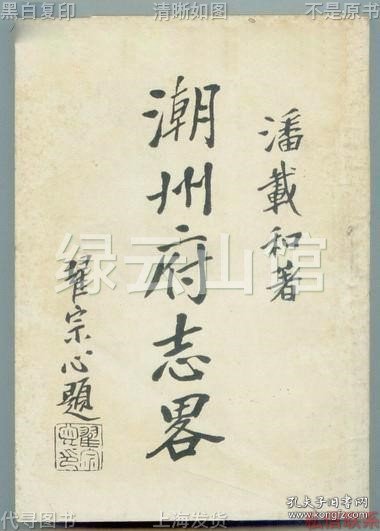 黑白复印 清晰如图 不是原书
潘載和著
潮州府志畧
翟宗心題
绿云山馆
孔夫子旧书网
www.kongfz.com
代寻图书 上海发货